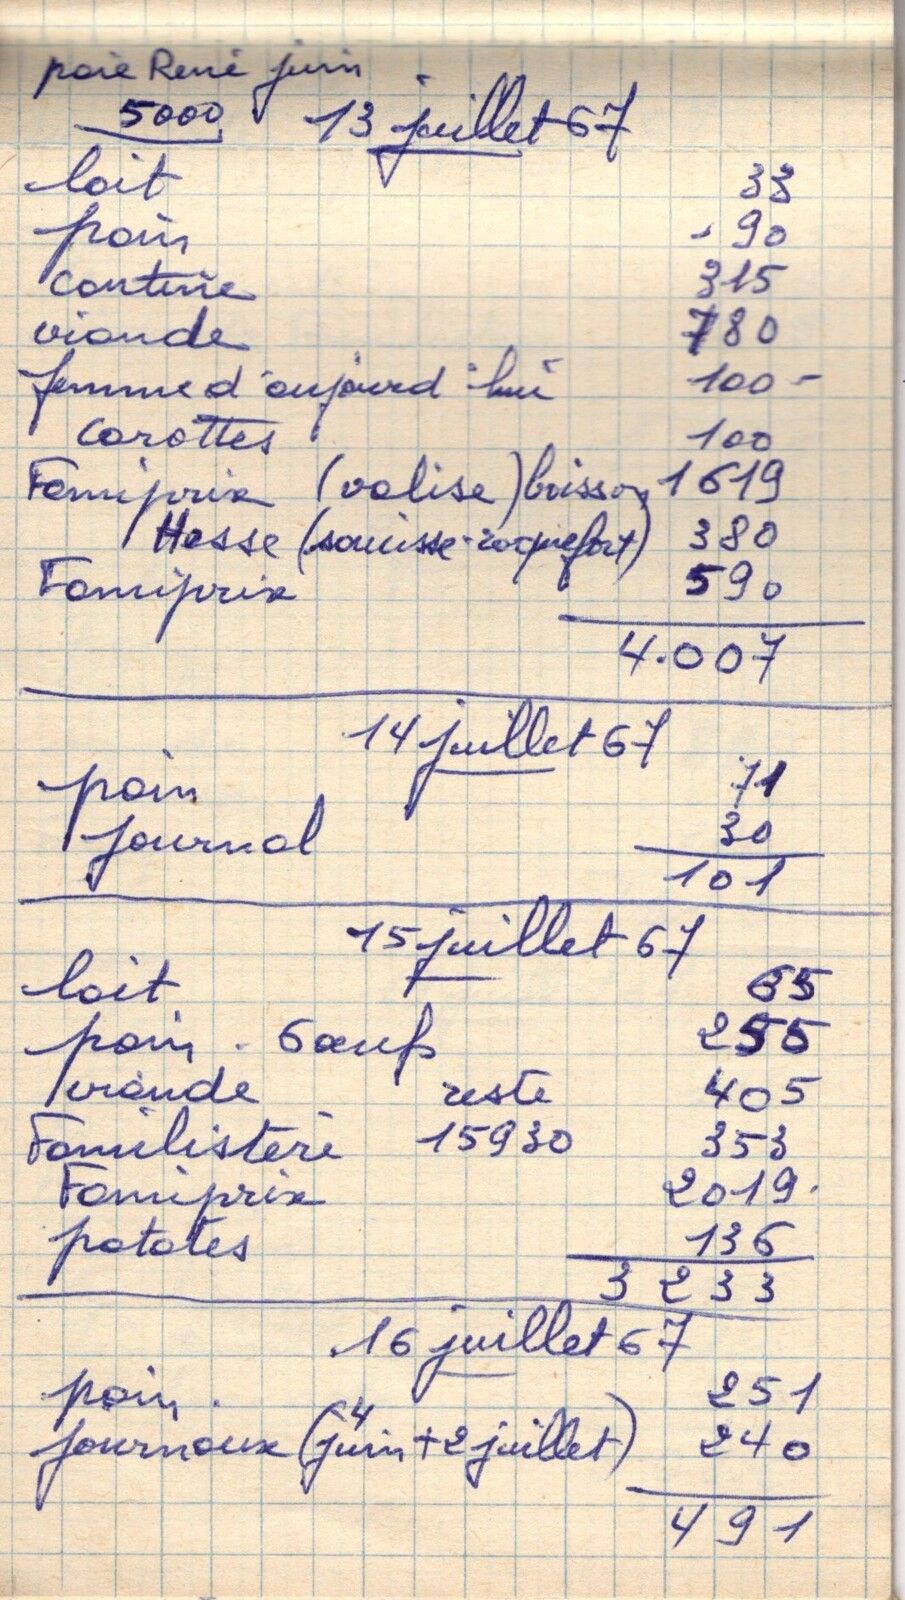 paie René juin
5000 13 juillet 67
lait 33
pain - 90
cantine 315
viande 780
femme d'aujourd'hui 100 -
carottes 100
Famiprix (valise) boisson 1619
Hesse (saucisse-roquefort) 380
Famiprix 590
4.007
14 juillet 67
pain 71
journal 30
101
15 juillet 67
lait 65
pain. 6 œufs 255
viande reste 405
Familistère 15930 353
Famiprix 2019.
patates 136
3 233
16 juillet 67
pain. 251
journaux (4 juin + 2 juillet) 240
491